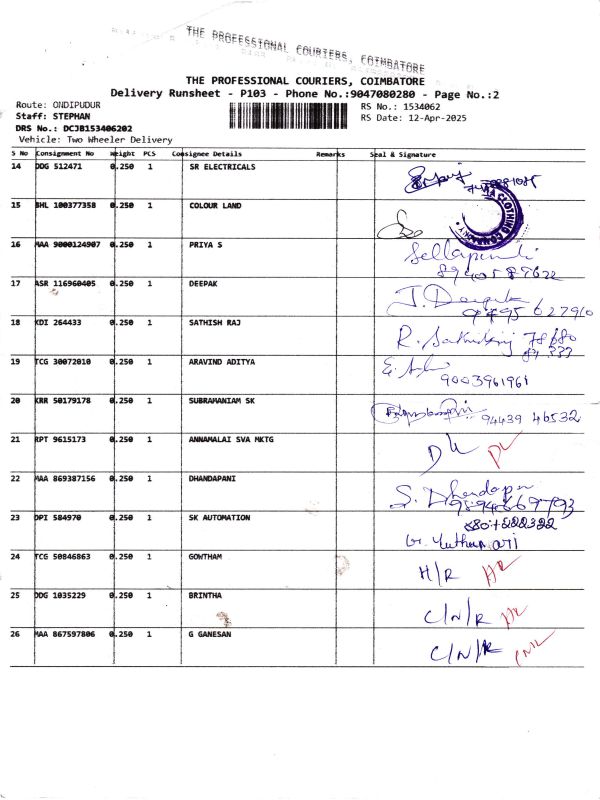 THE PROFESSIONAL COURIERS, COIMBATORE
THE PROFESSIONAL COURIERS, COIMBATORE
Delivery Runsheet - P103 - Phone No.:9047080280 - Page No.:2
Route: ONDIPUDUR RS No.: 1534062
Staff: STEPHAN RS Date: 12-Apr-2025
DRS No.: DCJB153406202
Vehicle: Two Wheeler Delivery
S No Consignment No Weight PCS Consignee Details Remarks Seal & Signature
14 DDG 512471 0.250 1 SR ELECTRICALS
15 BHL 100377358 0.250 1 COLOUR LAND
CLOTHING COMPANY
16 MAA 9000124907 0.250 1 PRIYA S
8940587622
17 ASR 116960405 0.250 1 DEEPAK J. Deepak
18 KDI 264433 0.250 1 SATHISH RAJ
19 TCG 30072010 0.250 1 ARAVIND ADITYA
9003961961
20 KRR 50179178 0.250 1 SUBRAMANIAM SK 94439 46532
21 RPT 9615173 0.250 1 ANNAMALAI SVA MKTG DL DL
22 MAA 869387156 0.250 1 DHANDAPANI S. Dhandapani
23 DPI 584970 0.250 1 SK AUTOMATION
24 TCG 50846863 0.250 1 GOWTHAM H/R HR
25 DDG 1035229 0.250 1 BRINTHA C/N/R
26 MAA 867597806 0.250 1 G GANESAN C/N/R CNR